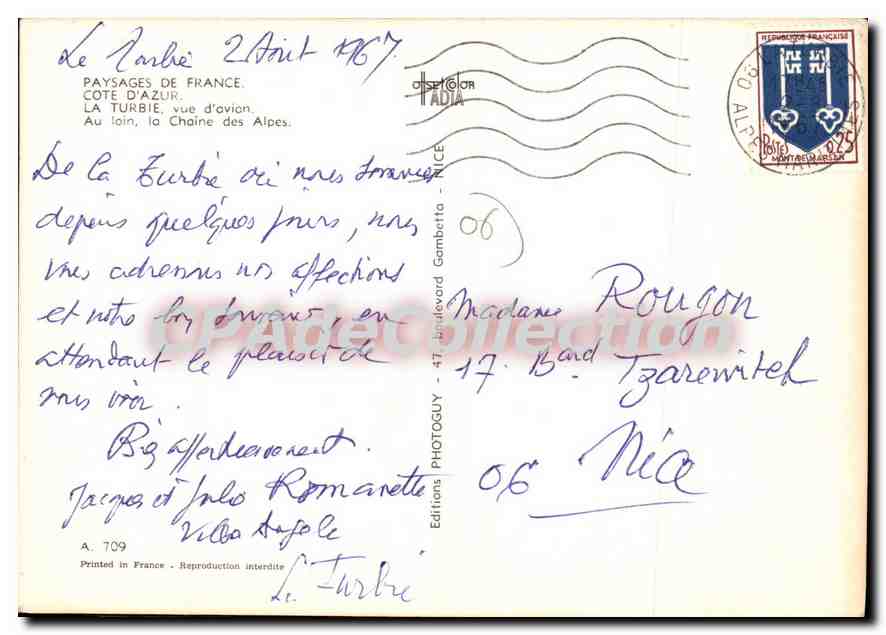 La Turbie 2 Août 1967
PAYSAGES DE FRANCE.
COTE D'AZUR.
LA TURBIE, vue d'avion.
Au loin, la Chaîne des Alpes.
offset Color
IADIA
REPUBLIQUE FRANÇAISE
POSTES 0,25
MONT-DE-MARSAN
06
ALPES MARITIMES
De la Turbie où nous sommes
depuis quelques jours, nous
vous adressons nos affections
et notre bon souvenir, en
attendant le plaisir de
vous voir.
Bien affectueusement.
Jacques et Romanette
Villa Angele
La Turbie
A. 709
Printed in France - Reproduction interdite
Editions PHOTOGUY - 47, boulevard Gambetta - NICE
06
Madame Rougon
17 Bard Tzarewitch
06 Nice
CPAdeCollection